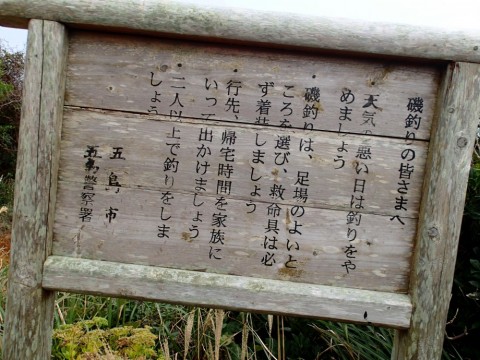 磯釣りの皆さまへ
・天気の悪い日は釣りをや
めましょう
・磯釣りは、足場のよいと
ころを選び、救命具は必
ず着装しましょう
・行先、帰宅時間を家族に
いって出かけましょう
・二人以上で釣りをしま
しょう
五島市
五島警察署